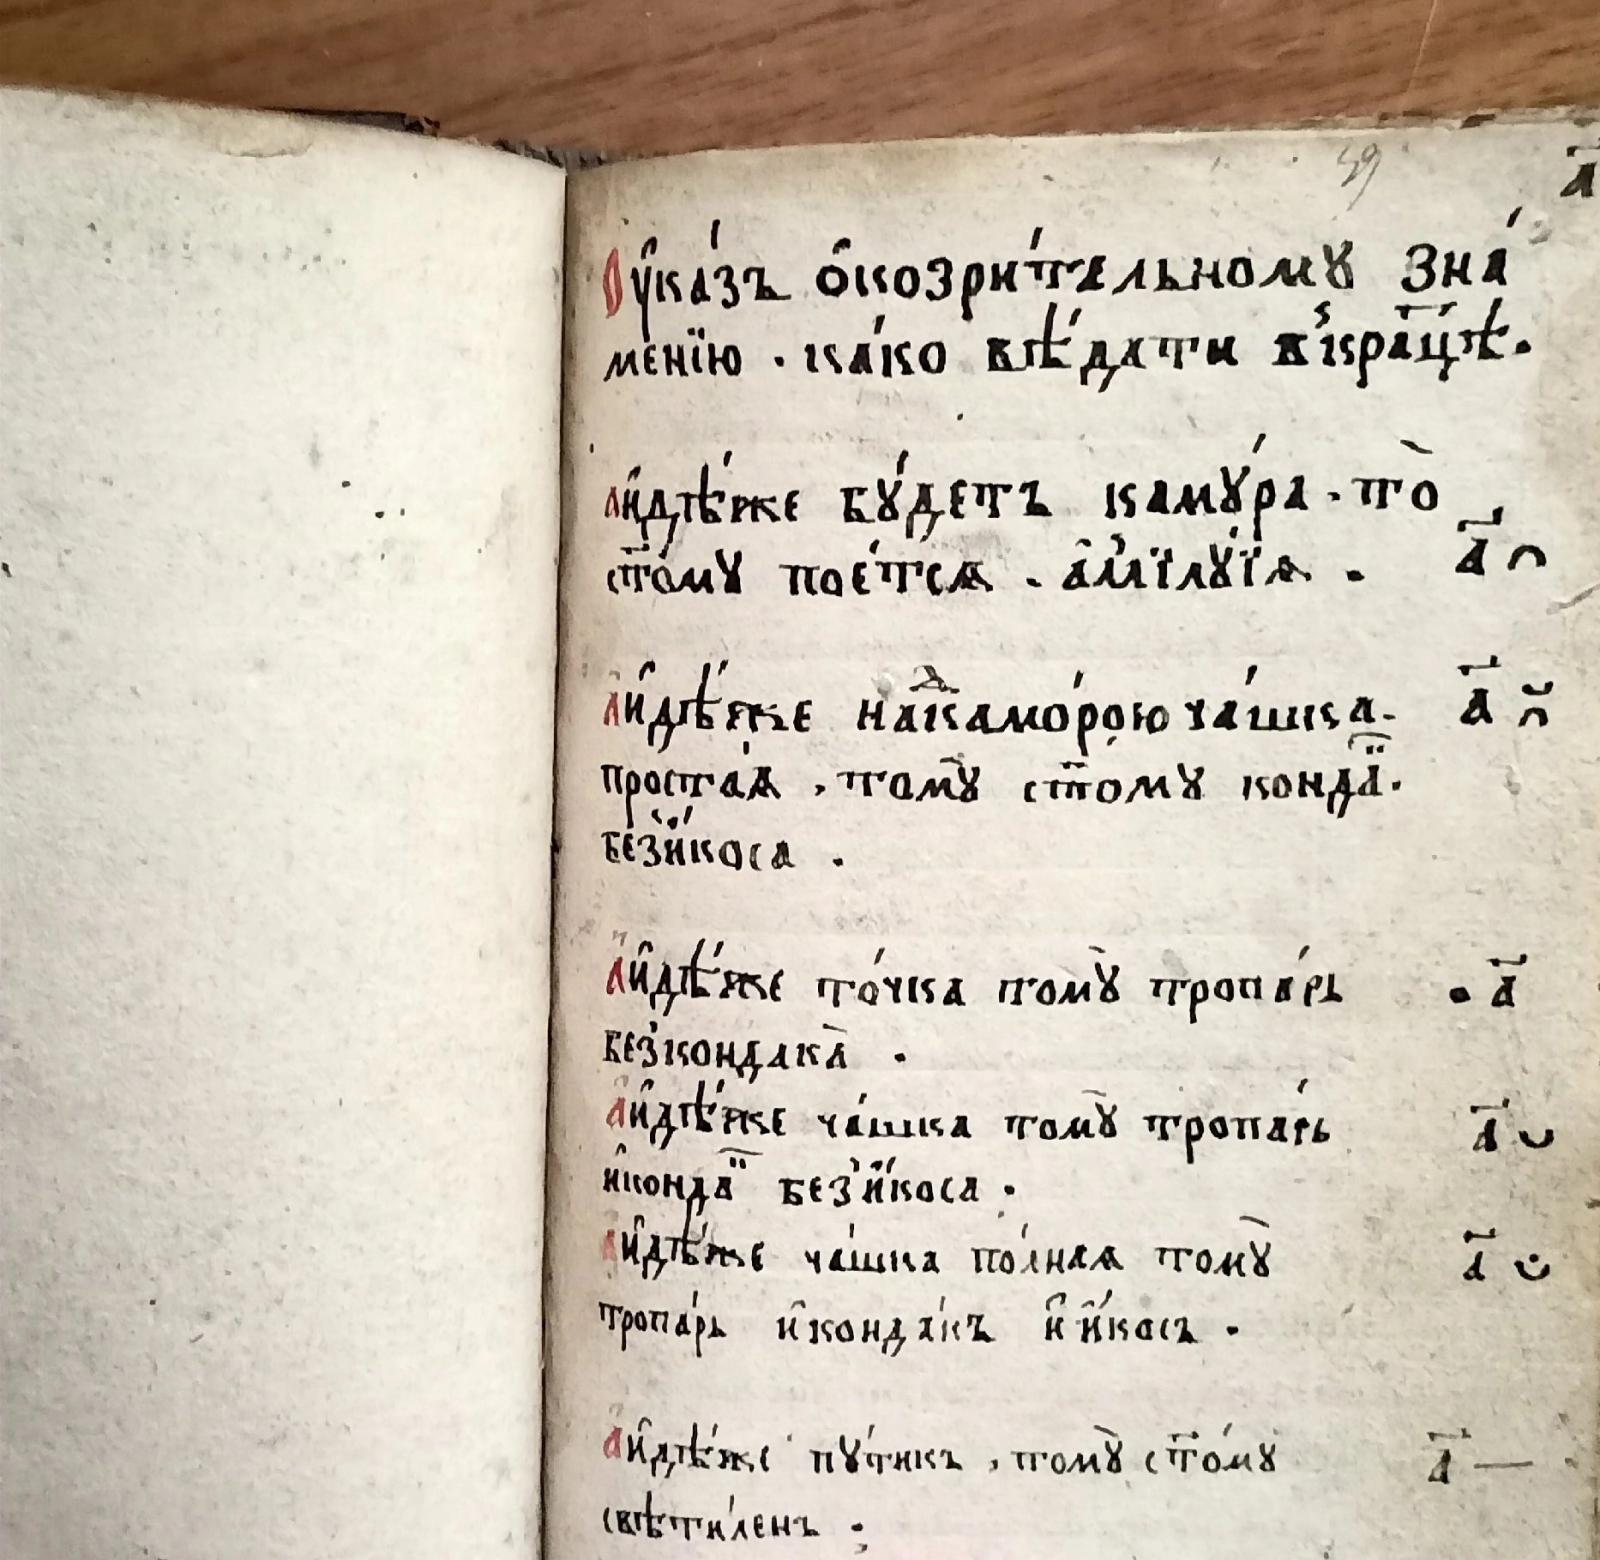 49
а҃
Ѹ҆ка́зъ ѻ҆козри́тельному зна́
менїю . ка́ко вѣ́дати в̾кра́цѣ .
А и҆дѣ́же бꙋ́детъ камꙋ́ра . то̀
ст҃о́мꙋ пое́тсѧ . а҆ллилꙋ́їа .
а҃ ◠
А и҆дѣ́же над̾камо́рою ча́шка .
проста́ѧ , томꙋ̀ ст҃о́мꙋ кондӓ́ .
без̾и҆́коса .
а҃
А и҆дѣ́же то́чка томꙋ̀ тропа́рь
без̾кондака̀ .
• а҃
А и҆дѣ́же ча́шка томꙋ̀ тропа́рь
и҆кондӓ без̾и҆́коса .
а҃ ◡
А и҆дѣ́же ча́шка по́лнаѧ томꙋ̀
тропа́рь и҆конда́къ и҆ и҆́косъ .
а҃
А и҆дѣ́же пꙋ́тикъ , томꙋ̀ ст҃о́мꙋ
свѣти́ленъ :
а҃ —